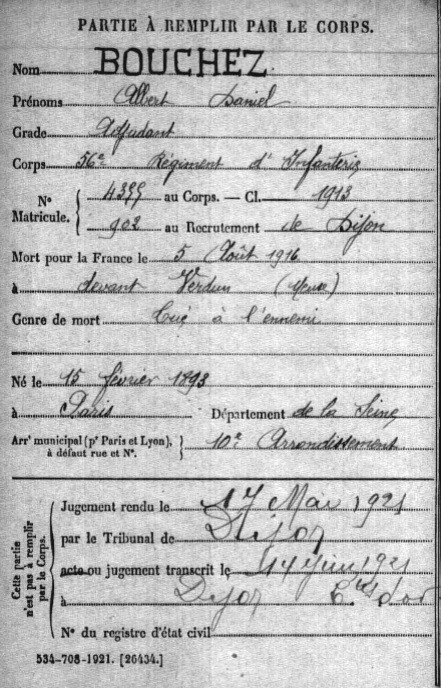 PARTIE À REMPLIR PAR LE CORPS.
Nom BOUCHEZ
Prénoms Albert Daniel
Grade Adjudant
Corps 56e Régiment d'Infanterie
N° Matricule. 4399 au Corps. — Cl. 1913
902 au Recrutement de Dijon
Mort pour la France le 5 Août 1916
à devant Verdun (Meuse)
Genre de mort Tué à l'ennemi
Né le 15 février 1893
à Paris Département de la Seine
Arrt municipal (pr Paris et Lyon), à défaut rue et N°. 10e Arrondissement
Cette partie n'est pas à remplir par le Corps.
Jugement rendu le 17 Mai 1921
par le Tribunal de Dijon
acte ou jugement transcrit le 14 Juin 1921
à Dijon Côte d'or
N° du registre d'état civil
534-708-1921. [26434.]